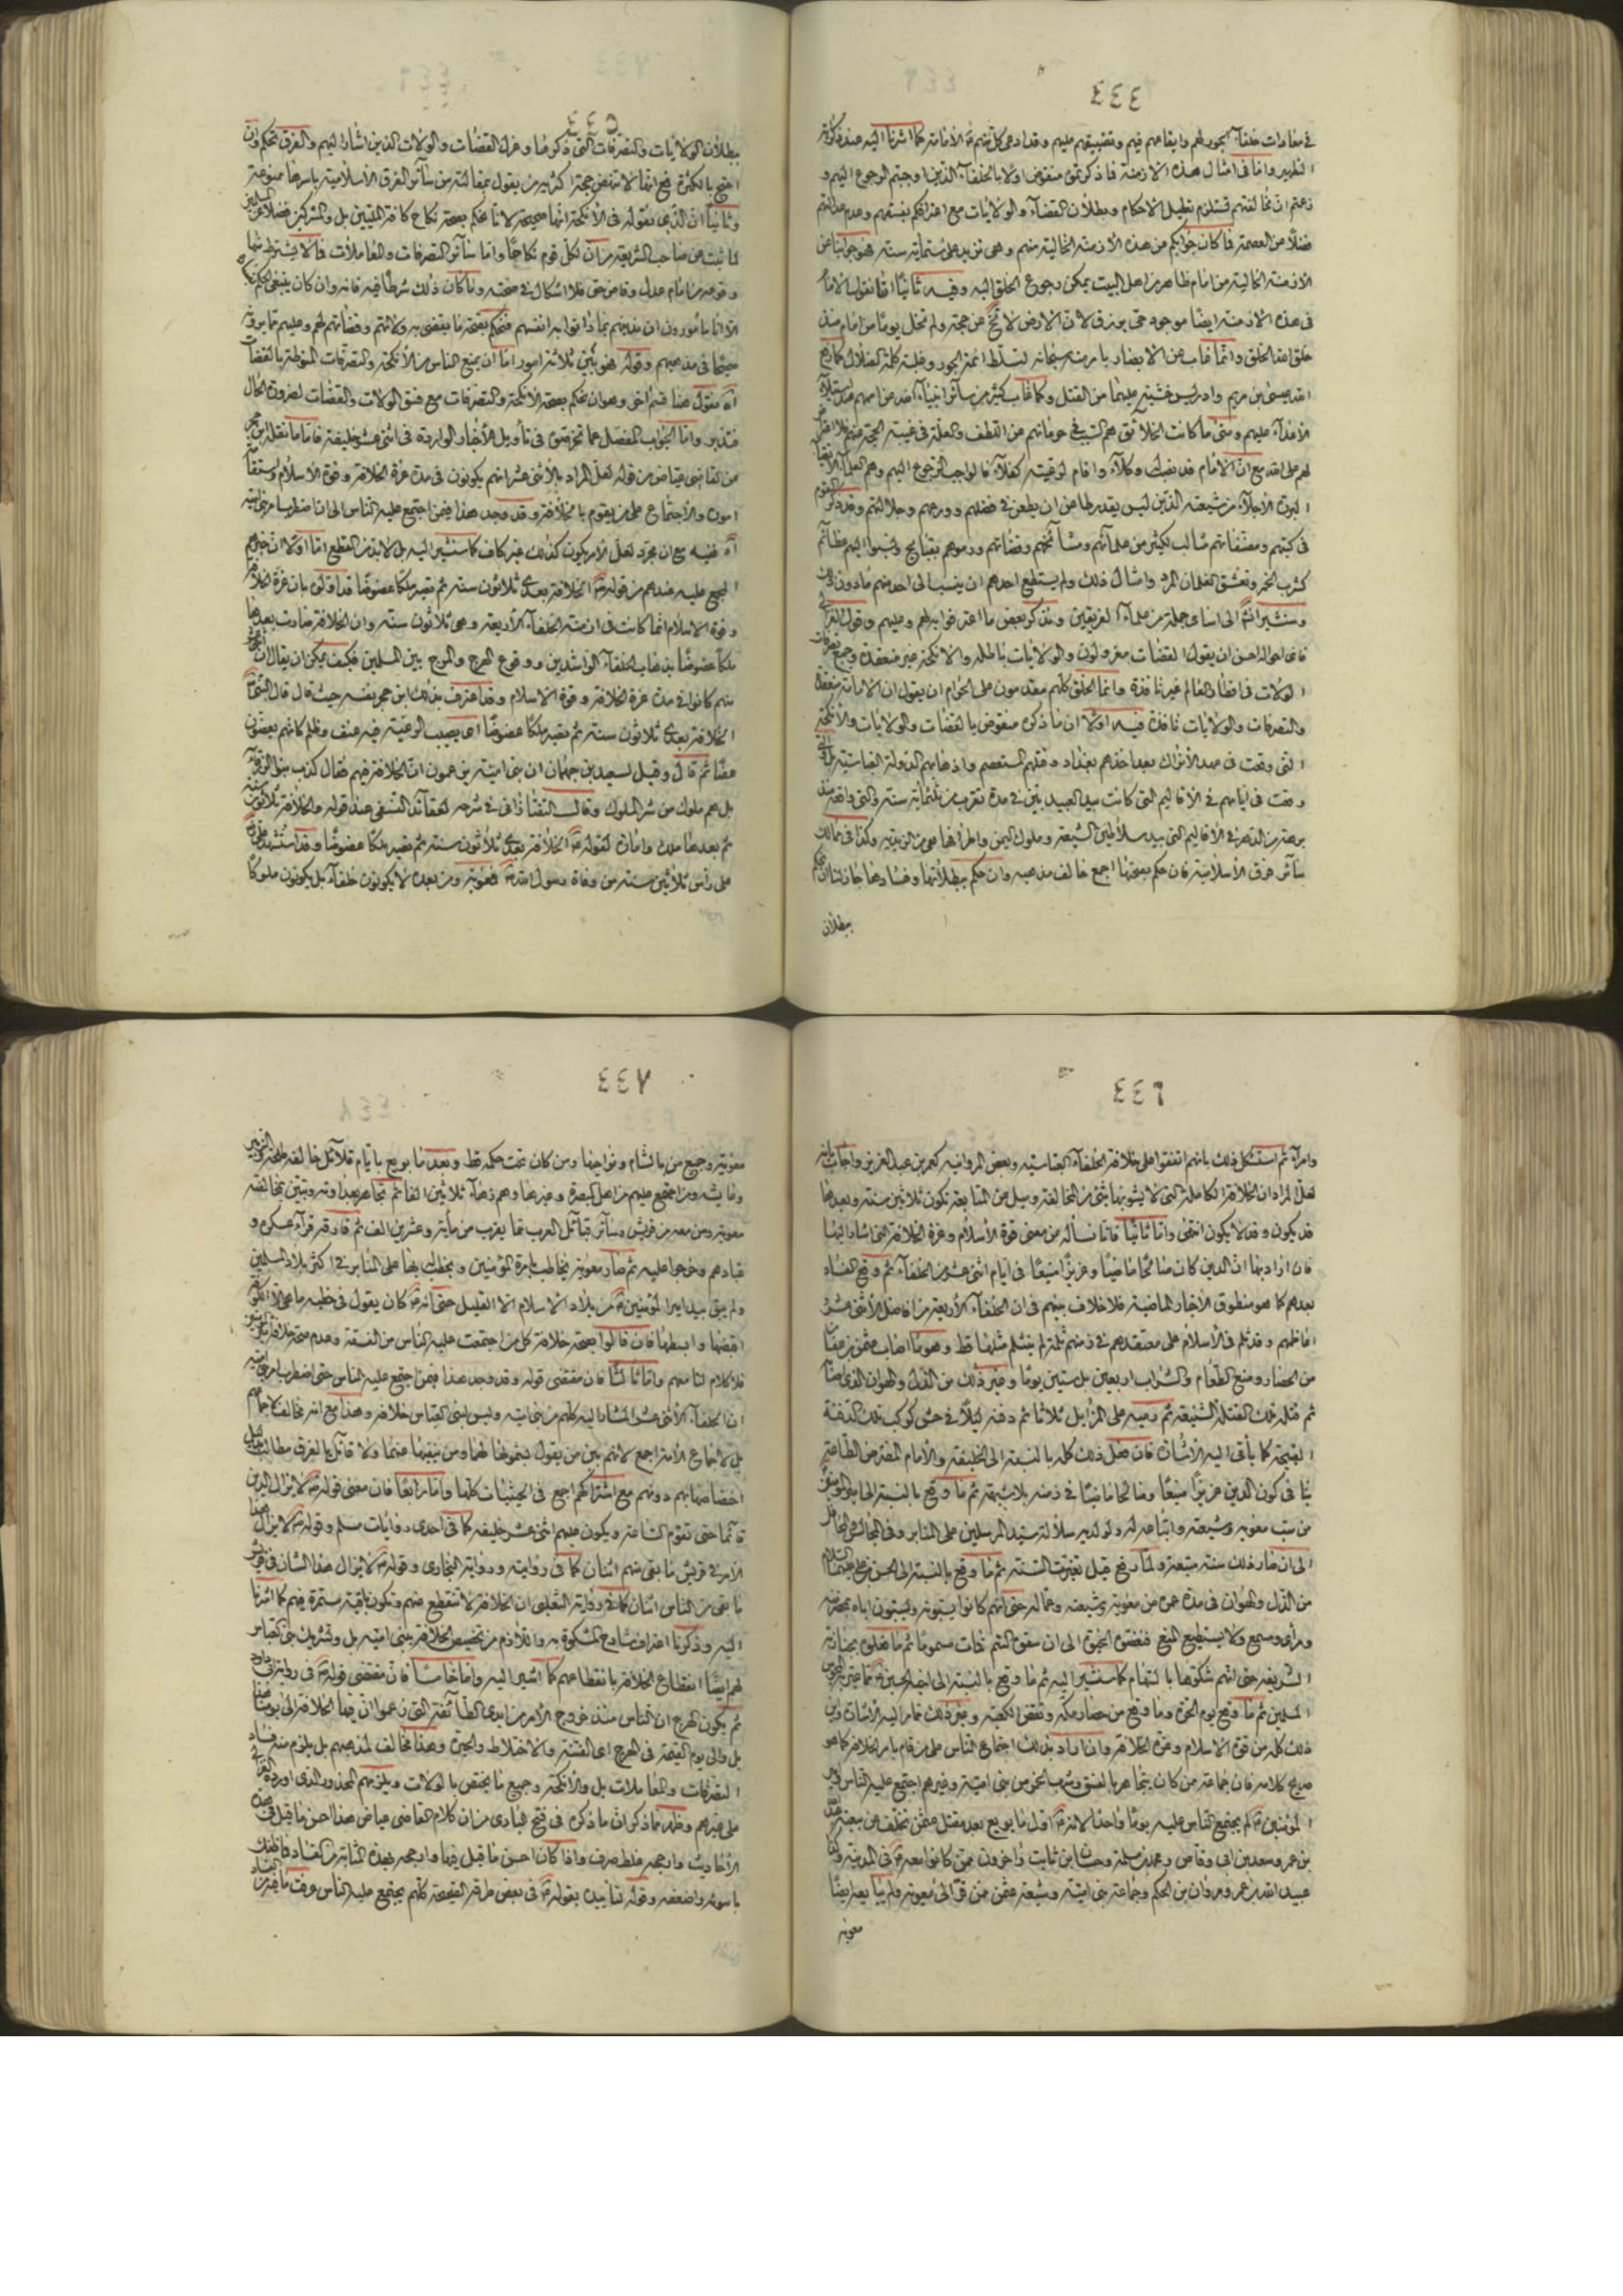 ٤٤٤
في معادات خلفآء الجور لهم وايقاعهم فيهم وتضييقهم عليهم وقد ادعى كل منهم الامامة كما اشرنا اليه عند ذكر
وامّا في امثال هذه الازمنة فما ذكرتموه منقوض اولا بالخلفآء الذين اوجبتم الرجوع اليهم و
زعمتم ان مخالفتهم تستلزم تعطيل الاحكام وبطلان القضآء والولايات مع اعترافكم بفسقهم وعدم عدالتهم
فضلاً عن العصمة فما كان جوابكم عن هذه الازمنة الخالية منهم وهي تزيد على ستمأية سنة فهو جوابنا عن
الازمنة الخالية من امام ظاهر من اهل البيت يمكن رجوع الخلق اليه وفيه ثانياً انا نقول الامام
في هذه الازمنة ايضاً موجود حيّ يرزق لان الارض لا تخ عن حجة ولم تخل يوماً من امام منذ
خلق الله الخلق وانّما غاب عن الابصار بامر من سبحانه لتسلّط ائمة الجور وغلبة كلمة الضلال كما رفع
الله عيسى بن مريم وادريس خشية عليهما من القتل وكما غاب كثير من سآئر انبيآء الله عن اممهم عند استيلآء
الاعدآء عليهم ومتى ما كانت الخلائق هم السبب في حرمانهم من اللطف والعلة في غيبة الحجة عنهم فلا
لهم على الله مع انّ الامام قد نصب وكلآء واقام لرعيته كفلآء فالواجب الرجوع اليهم وهم العلمآء الاتقيآء
البررة الاجلآء من شيعته الذين ليس يقدر طاعن ان يطعن في فضلهم وورعهم وجلالتهم وقد ذكر القوم
في كتبهم ومصنفاتهم مثالب لكثير من علمآئهم ومشآئخهم وقضاتهم ورموهم بقبايح ونسبوا اليهم عظآئم
كشرب الخمر وتعشق الغلمان المرد وامثال ذلك ولم يستطع احدهم ان ينسب الى احد منهم ما دون ذلك
وسنشير انشآ الى اسامي جملة من علمآء الفريقين ونذكر بعض ما اعترفوا به لهم وعليهم وقول
فاىّ احواله احسن ان يقول القضات معزولون والولايات باطلة والانكحة غير منعقدة وجميع تصرفات
الولات في اقطار العالم غير نافذة وانما الخلق كلهم مقدمون على الحرام او يقول ان الامامة منعقدة
والتصرفات والولايات نافذة فيه اولا ان ما ذكره منقوض بالقضات والولايات والانكحة
التي وقعت في عهد الاتراك بعد اخذهم بغداد وقتلهم المستعصم واذهابهم الدولة العباسية
وقعت في ايامهم في الاقاليم التي كانت بيد العبيديين في مدة تقرب من ثلثمأية سنة والتي واقعة منذ
برهة من الدهر في الاقاليم التي بيد سلاطين الشيعة وملوك اليمن واطرافها من الزيدية وكذا في ممالك
سآئر فرق الاسلامية فان حكم بصحتها اجمع خالف مذهبه وان حكم ببطلانها وفسادها جاز لنا ان نحكم
ببطلان
٤٤٥
ببطلان الولايات والتصرفات التي ذكرها وعزل القضات والولات الذين اشار اليهم والفرق تحكم وان
احتج بالكثرة فمع انها لا تنهض حجة اكثر من يقول بمقالته من سآئر الفرق الاسلامية باسرها ممنوعة
وثانياً ان الذي نقوله في الانكحة انها صحيحة لانا نحكم بصحة نكاح كافة المليين بل والمشركين فضلاً عن المسلمين
لما ثبت عن صاحب الشريعة من ان لكل قوم نكاحاً وامّا سآئر التصرفات والمعاملات فما لا يشترط منها
وقوعه من امام عدل وقاض حق فلا اشكال في صحته وما كان ذلك شرطاً فيه فانه وان كان ينبغي الحكم
الا انا مأمورون ان ندينهم بما دانوا به انفسهم فنحكم بصحة ما يقتضي به ولاتهم وقضاتهم لهم وعليهم مما يرونه
صحيحاً في مذهبهم وقوله فهو بين ثلاثة امور امّا ان يمنع الناس من الانكحة والتصرفات المنوطة بالقضات
آه نقول هنا قسم اخر وهو ان نحكم بصحة الانكحة والتصرفات مع فسق الولات والقضات لضرورة الحال
فتدبر وامّا الجواب المفصل عما تخرصوه في تأويل الاخبار الواردة في اثنى عشر خليفة فاما ما نقله ابن حجر
من القاضي عياض من قوله لعلّ المراد بالاثنى عشر انهم يكونون في مدة عزة الخلافة وقوة الاسلام واستقامة
اموره والاجتماع على من يقوم بالخلافة وقد وجد هذا فيمن اجتمع عليه الناس الى ان اضطرب امر بني امية
آه ففيه مع ان مجرّد لعلّ الامر يكون كذلك غير كاف كما سنشير اليه بل لابدّ من القطع امّا اولا ان خبرهم
المجمع عليه عندهم من قوله الخلافة بعدي ثلاثون سنة ثم تصير ملكاً عضوضاً قد اوّلوه بان عزة الخلافة
وقوة الاسلام انما كانت في ازمنة الخلفآء الاربعة وهي ثلاثون سنة وان الخلافة صارت بعدها
ملكاً عضوضاً بذهاب الخلفآء الراشدين ووقوع الهرج والمرج بين المسلمين فكيف يمكن ان يقال ان
منهم كانوا في مدة عزة الخلافة وقوة الاسلام وقد اعترف بذلك ابن حجر بنفسه حيث قال قال النبي
الخلافة بعدي ثلاثون سنة ثم تصير ملكاً عضوضاً اى يصيب الرعية فيه عنف وظلم كانهم يعضون
عضّا ثم قال وقيل لسعيد بن جهمان ان بني امية يزعمون انّ الخلافة فيهم فقال كذب بنو الزرقآء
بل هم ملوك من شر الملوك وقال التفتازاني في شرحه لعقآئد النسفي عند قوله والخلافة ثلاثون سنة
ثم بعدها ملك وامارة لقوله الخلافة بعدي ثلاثون سنة ثم تصير ملكاً عضوضاً وقد استشهد على
على رأس ثلاثين سنة من وفاة رسول الله فمعوية ومن بعده لا يكونون خلفآء بل يكونون ملوكاً
٤٤٦
وامرآء ثم استشكل ذلك بانهم اتفقوا على خلافة الخلفآء العباسية وبعض المروانية كعمر بن عبد العزيز واجاب بانه
لعلّ المراد ان الخلافة الكاملة التي لا يشوبها شئ من المخالفة وميل عن المتابعة تكون ثلاثين سنة وبعدها
قد يكون وقد لا يكون انتهى وامّا ثانيا فانا نسأله عن معنى قوة الاسلام وعزة الخلافة التي اشار اليها
فان اراد بها انّ الدين كان صالحاً ماضياً وعزيزاً منيعاً في ايام اثنى عشر من الخلفآء ثم وقع الفساد
بعدهم كما هو منطوق الاخبار الماضية فلا خلاف بينهم في ان الخلفآء الاربعة من افاضل الاثنى عشر
افاضلهم وقد ثلم في الاسلام على معتقدهم في زمنهم ثلمة لم ينثلم مثلها قط وهو ما اصاب عثمن بن عفان
من الحصار ومنع الطعام والشراب اربعين بل ستين يوماً وغير ذلك من الذل والهوان الذي
ثم قتله تلك القتلة الشنيعة ثم رميه على المزابل ثلاثا ثم دفنه ليلاً في حش كوكب تلك الدفنة
القبيحة كما يأتي اليه الاشارة فان فعل ذلك كله بالنسبة الى الخليفة والامام المفترض الطاعة
ينافي كون الدين عزيزاً منيعاً وصالحا ماضيا في زمنه بلا شبهة ثم ما وقع بالنسبة الى
من سبّ معوية وشيعته واتباعه له ولولديه سلالة سيد المرسلين على المنابر وفي المجالس والمحافل
الى ان صار ذلك سنة متبعة ولمّا رفع قيل تغيّرت السّنة ثم ما وقع بالنسبة الى الحسن بن علي عليهما السلام
من الذل والهوان في مدة عمره من معوية وشيعته وعماله حتى انهم كانوا يسبّونه ويسبّون اباه بحضرته
ومرأى ومسمع ولا يستطيع المنع الى ان سقوه السّم فمات مسموماً ثم ما فعلوه بجنازته
الشريفة حتى انهم شكوها بالسهام كما سنشير اليه ثم ما وقع بالنسبة الى اخيه الحسين
المسلمين ثم ما وقع يوم الحرّة وما وقع من حصار مكة ونقض الكعبة وغير ذلك مما مر اليه الاشارة
ذلك كله من قوة الاسلام وعزة الخلافة وان اراد بذلك اجتماع الناس على من قام بامر الخلافة كما هو
صريح كلامه فان جماعة ممن كان يتجاهر بالفسق وشرب الخمر من بني امية وغيرهم اجتمع عليه الناس
المؤمنين لم يجتمع الناس عليه يوماً واحداً لانه اول ما بويع بعد مقتل عثمن تخلف عن بيعته
بن عمر وسعد بن ابي وقاص ومحمد بن مسلمة وحسان بن ثابت واخرون ممن كانوا معه في المدينة
عبيد الله بن عمر ومروان بن الحكم وجماعة بني امية وشيعة عثمن ممن فرّ الى معوية ولم يبايعه ايضاً
معوية
٤٤٧
معوية وجميع من بالشام ونواحيها ومن كان تحت حكمه قط وبعد ما بويع بايام قلآئل خالفه طلحة والزبير
وعايشة ومن اجتمع عليهم من اهل البصرة وغيرها وهم زهآء ثلاثين الفا ثم تجاهر بعداوته وتبيّن مخالفته
معوية ومن معه من قريش وسآئر قبآئل العرب مما يقرب من مأية وعشرين الف ثم فارقه قرآء عسكره و
عبادهم وخرجوا عليه ثم صار معوية يخاطب بامرة المؤمنين ويخطب بها على المنابر في اكثر بلاد المسلمين
ولم يبق بيد امير المؤمنين من بلاد الاسلام الا القليل حتى انه كان يقول في خطبه ما هي الا الكوفة
اقبضها وابسطها فان قالوا بصحة خلافة كل من اجتمعت عليه الناس من الفسقة وعدم صحة خلافة
فلا كلام لنا معهم وامّا ثالثا فان مقتضى قوله وقد وجد هذا فيمن اجتمع عليه الناس حتى اضطرب امر بني امية
انّ الخلفآء الاثنى عشر المشار اليه كلهم من بني امية وليس لبني العباس خلافة وهذا مع انه مخالف لاجماعهم
بل لاجماع الامة اجمع لانهم بين من يقول بثبوتها لهما ومن ينفيها عنهما ولا قآئل بالفرق مطالب بدليل
اختصاصها بهم دونهم مع اشتراكهم اجمع في الحيثيات كلها وامّا رابعا فان معنى قوله لا يزال الدين
قآئما حتى تقوم الساعة ويكون عليهم اثنى عشر خليفة كما في احدى روايات مسلم وقوله لا يزال هذا
الامر في قريش ما بقى منهم اثنان كما في روايته ورواية البخارى وقوله لا يزال هذا الشان في قريش
ما بقى من الناس اثنان كما في رواية الثعلبي ان الخلافة لا تنقطع عنهم وتكون باقية مستمرة فيهم كما اشرنا
اليه وذكرنا اعتراف شارح المشكوة به واللازم من تخصيص الخلافة ببني امية بل وتشريك بني العباس
لهم ايضاً انقطاع الخلافة بانقطاعهم كما اشير اليه وامّا خامساً فان مقتضى قوله في رواية ابي داود
ثم يكون الهرج ان الناس منذ خروج الامر من ايدى الطآئفة التي زعموا انّ فيها الخلافة الى يومنا هذا
بل والى يوم القيمة في الهرج اى الفتنة والاختلاط والحيرة وهذا مخالف لمذهبهم بل يلزم منه فساد
التصرفات والمعاملات بل والانكحة وجميع ما يختص بالولات ويلزمهم المحذور الذي اورده الغزالي
على غيرهم وظهر مما ذكر ان ما ذكره في فتح البارى من ان كلام القاضي عياض هذا احسن ما قيل في هذه
الاحاديث وارجحه غلط صرف واذا كان احسن ما قيل فيها وارجحه بهذه المثابة من الفساد فما ظنك
باسوئه واضعفه وقوله تتأيد بقوله في بعض طرقه الصحيحة كلهم يجتمع عليه الناس